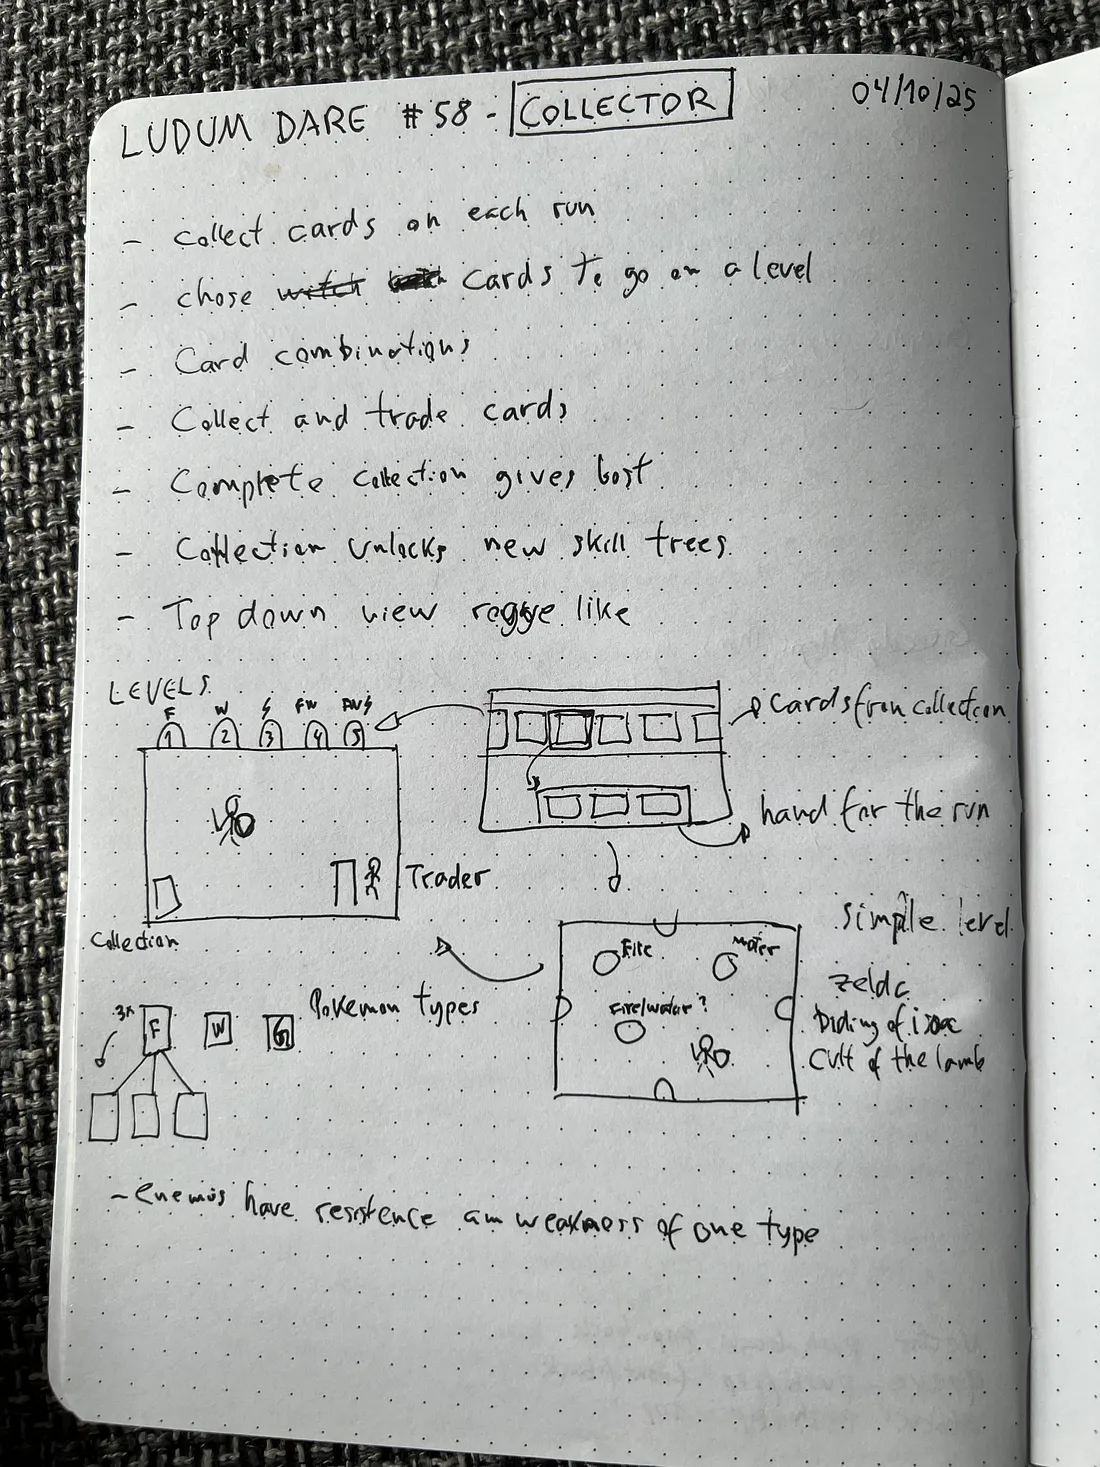 LUDUM DARE #58 - COLLECTOR
04/10/25
- collect cards on each run
- chose cards to go on a level
- Card combinations
- Collect and trade cards
- Complete collection gives bost
- Collection unlocks new skill trees
- Top down view rogge like
LEVELS
F W FW
1 2 3 4 5
Cards from collection
hand for the run
Trader
Collection
simple level
Fire water
Fire/water?
zelda
biding of isac
cult of the lamb
3x
F W G
Pokemon types
- enemis have resistence am weakness of one type